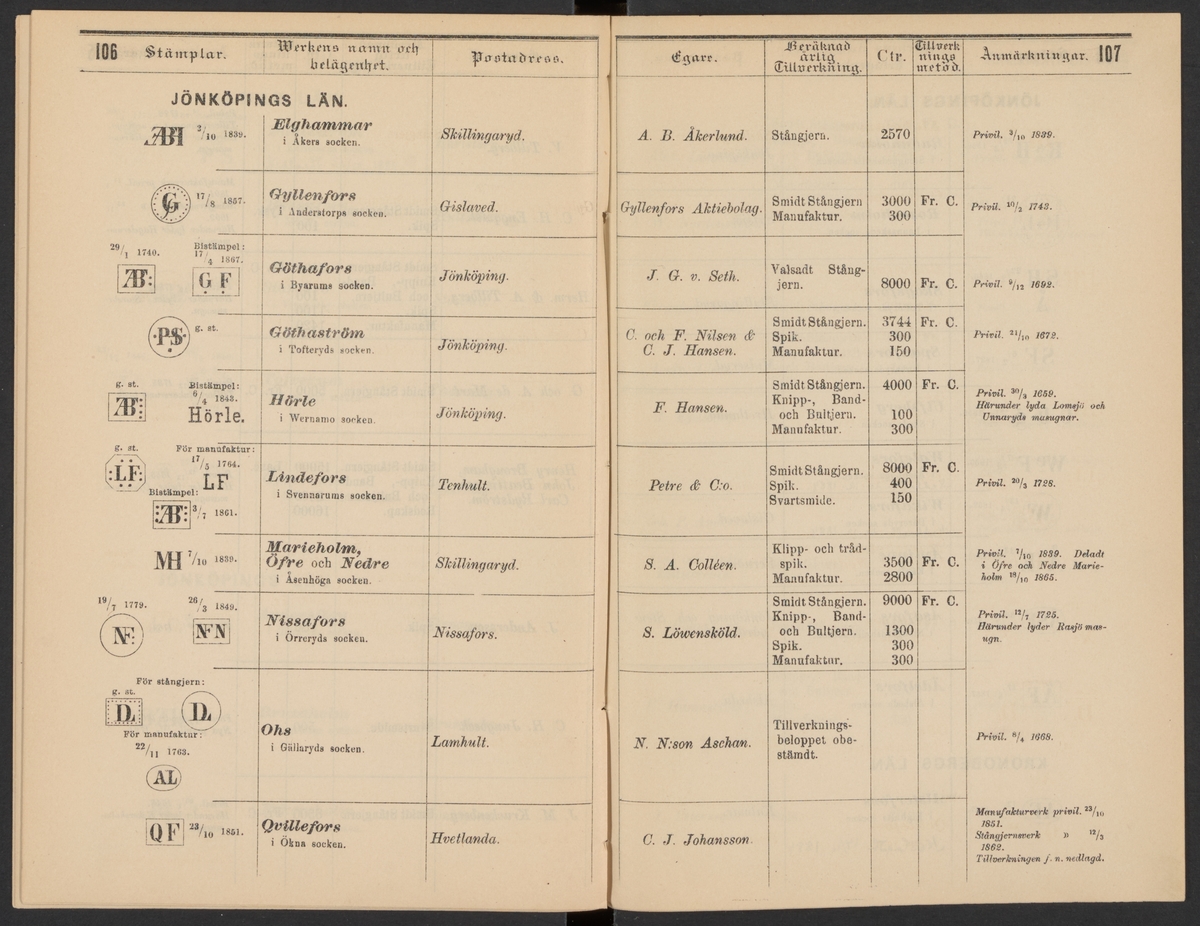 106 Stämplar. Werkens namn och belägenhet. Postadress. Egare. Beräknad årlig Tillverkning. Ctr. Tillverknings metod. Anmärkningar. 107
JÖNKÖPINGS LÄN.
2/10 1839.
Elghammar
i Åkers socken.
Skillingaryd.
A. B. Åkerlund.
Stångjern. 2570
Privil. 3/10 1839.
17/8 1857.
Gyllenfors
i Anderstorps socken.
Gislaved.
Gyllenfors Aktiebolag.
Smidt Stångjern 3000 Fr. C.
Manufaktur 300
Privil. 10/2 1743.
29/1 1740. Bistämpel:
17/4 1867.
G F
Göthafors
i Byarums socken.
Jönköping.
J. G. v. Seth.
Valsadt Stång-
jern. 8000 Fr. C.
Privil. 9/12 1692.
PS g. st.
Göthaström
i Tofteryds socken.
Jönköping.
C. och F. Nilsen &
C. J. Hansen.
Smidt Stångjern. 3744 Fr. C.
Spik. 300
Manufaktur. 150
Privil. 21/10 1672.
g. st. Bistämpel:
6/4 1843.
Hörle.
Hörle
i Wernamo socken.
Jönköping.
F. Hansen.
Smidt Stångjern. 4000 Fr. C.
Knipp-, Band-
och Bultjern. 100
Manufaktur. 300
Privil. 30/3 1659.
Härunder lyda Lomsjö och
Unnaryds masugnar.
g. st. För manufaktur:
17/5 1764.
LF LF
Bistämpel:
3/7 1861.
Lindefors
i Svennarums socken.
Tenhult.
Petre & C:o.
Smidt Stångjern. 8000 Fr. C.
Spik. 400
Svartsmide. 150
Privil. 20/3 1728.
MH 7/10 1839.
Marieholm,
Öfre och Nedre
i Åsenhöga socken.
Skillingaryd.
S. A. Colléen.
Klipp- och tråd-
spik. 3500 Fr. C.
Manufaktur. 2800
Privil. 7/10 1839. Deladt
i Öfre och Nedre Marie-
holm 18/10 1865.
19/7 1779. 26/3 1849.
Nissafors
i Örreryds socken.
Nissafors.
S. Löwensköld.
Smidt Stångjern. 9000 Fr. C.
Knipp-, Band-
och Bultjern. 1300
Spik. 300
Manufaktur. 300
Privil. 12/7 1725.
Härunder lyder Rasjö mas-
ugn.
För stångjern:
g. st.
För manufaktur:
22/11 1763.
AL
Ohs
i Gällaryds socken.
Lamhult.
N. N:son Aschan.
Tillverknings-
beloppet obe-
stämdt.
Privil. 6/4 1668.
QF 23/10 1851.
Qvillefors
i Ökna socken.
Hvetlanda.
C. J. Johansson.
Manufakturverk privil. 23/10
1851.
Stångjernsverk » 12/3
1862.
Tillverkningen f. n. nedlagd.